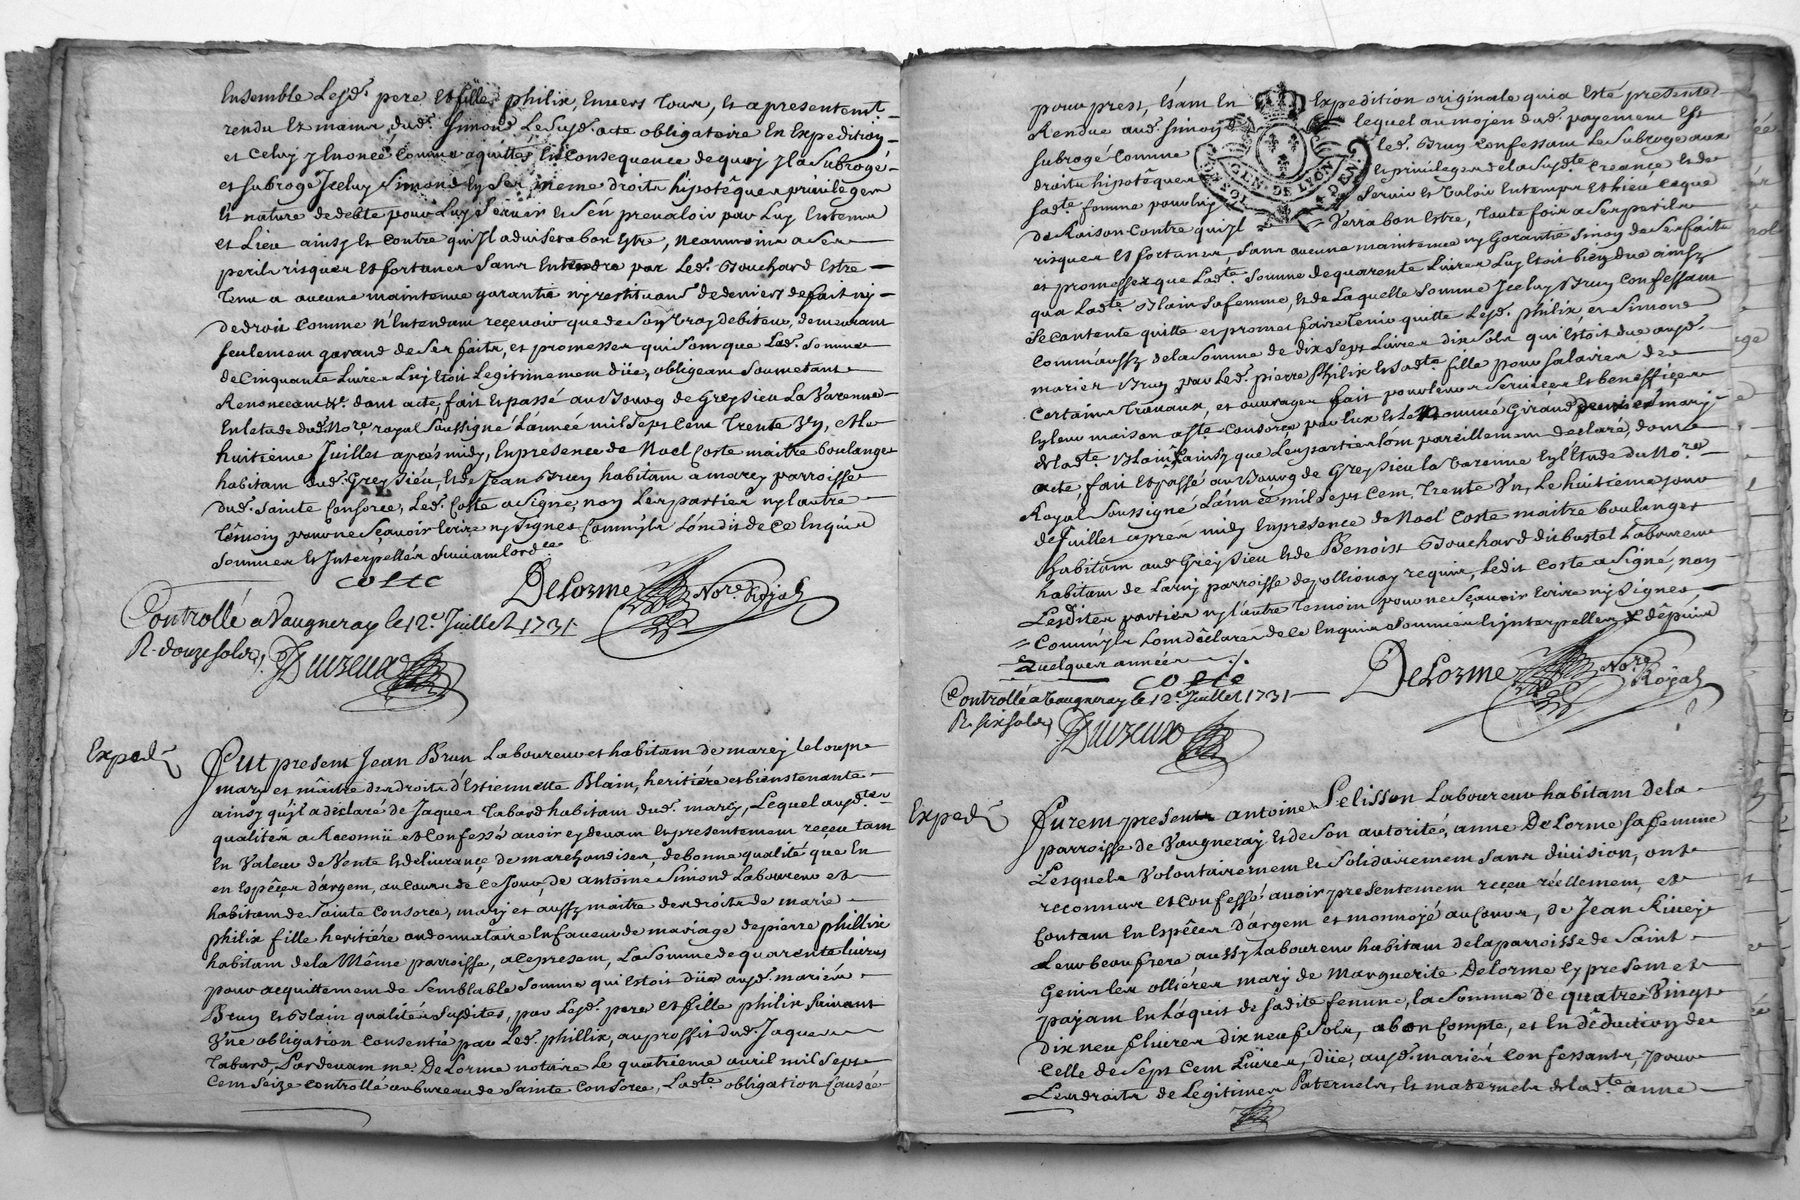 Ensemble Lesd. pere et fille philix Envers Tous, et apresentemt.
rendu Ez mains dud. Simond Le susd. acte obligatoire En Expedition
et Celuy y Enoncé Comme aquittés En Consequence de quoy Il a Subrogé
et subroge Iceluy Simond Ez Ses meme droits hipotêques privileges
Et nature de debte pour Luy Servir et S'en prevaloir par Luy En tems
et Lieu ainsy et contre qui Il advisera bon Estre, neanmoins a Ses
perils risques et fortunes Sans Entendre par Led. Bouchard Estre
Tenu a aucune maintenue garantie ny restituon. de deniers de fait ny
de droit Comme n'Entendant reçevoir que de Son vray debiteur, demeurant
seulement garand de Ses faits, et promesses qui Sont que Lad. Somme
de Cinquante Livres Luy Etoit Legitimement düe, obligeant Soumetant
Renonceant &c. dont acte, fait et passé au Bourg de Greysieu La Varenne
En letude dud. Nore. royal Soussigné L'année mil Sept Cent Trente Un, et le
huitième Juillet après midy, En presence de Noel Coste maitre boulanger
habitant dud. Greysieu, et de Jean Brun habitant a marcy parroisse
dud. Sainte Consorce, Led. Coste a Signé, non Les parties ny l'autre
Têmoin pour ne Sçavoir Ecrire ny Signer Comm'ils L'ont dit de Ce Enquis
Sommés et Interpellés Suivant lordce
coste DeLorme Nore. Royal
Controllé a Vaugneray le 12e. Juillet 1731
R. douze sols
Duizeux
Exped
Fut present Jean Brun Laboureur et habitant de marcy le loup
mary et maitre des droits d'Estiennette Blain, heritière et bienstenante
ainsy qu'Il a declaré de Jaques Tabard habitant dud. marcy, Lequel ausd.tes
qualités a Reconnü et Confessé avoir cydevant et presentement reçeu tant
En Valeur de Vente et delivrançe de marchandises, de bonne qualité que En
en Espêces d'argent, au Cours de Ce Jour, de antoine Simond Laboureur et
habitant de Sainte Consorce, mary et aussy maitre des droits de marie
philix fille heritière ou donnataire En faveur de mariage de pierre phillix
habitant de la Même parroisse, a Ce present, La Somme de quarente livres
pour acquittement de Semblable Somme qui Estoit düe ausd. mariés
Brun et Blain qualités Susdites, par Lesd. pere et fille philix Suivant
Une obligation Consentie par Led. phillix, au proffit dud. Jaques
Tabard, Pardevant me DeLorme notaire Le quatrieme avril mil Sept
Cent Seize Controllé au bureau de Sainte Consorce, Ladte. obligation Causée
pour prest, Esant En Expedition originale qui a Esté presente
Rendue aud. Simond lequel au moyen dud. payement Est
subrogé Comme led. Brun Confessant Le Subroge aux
droits hipotêques et privileges de la Susdte. Creançe et de
sadte. femme pour luy Servir et Valoir En temps et lieu Ce que
de Raison Contre qu'il Verra bon Estre, toute fois a Ses perils
risques et fortunes, Sans aucune maintenue ny Garantie Sinon de Ses faits
et promesses que Ladte. Somme de quarente Livres Luy Etoit bien due ainsy
qua Ladte. Blain Sa femme, et de Laquelle Somme Iceluy Brun Confessant
Se Contente quitte et promet faire tenir quitte Lesd. philix, et Simond
Comm'aussy de la Somme de dix Sept Livres dix Sols qui Estoit due ausd.
mariés Brun par Led. pierre philix et Sadte. fille pour Salaires de
Certains Travaux, et ouvrages fait pour leurs Services et benefiçe
En leur maison a Ste. Consorce par Eux et Le Nommé Girand premier mary
de Ladte. Blain ainsy que Les parties l'ont pareillement declaré, dont
acte fait et passé au Bourg de Greysieu la Varenne En l'Etude du Nore.
Royal Soussigné L'année mil Sept Cent Trente Un, Le huitieme Jour
de Juillet après midy En presence de Noel Coste maitre boulanger
habitant aud. Greysieu et de Benoist Bouchard dit bustel Laboureur
habitant de Larny parroisse de pollionay requis, Ledit Coste a Signé, non
Lesdites parties ny l'autre Temoin pour ne Sçavoir Ecrire ny Signer
Comm'ils L'ont dêclarés de Ce Enquis Sommés et Interpellés & dêpuis
Quelques années
coste DeLorme Nore. Royal
Controllé a Vaugneray le 12e. Juillet 1731
R. six sols
Duizeux
GLN. DE LYON
Exped
Furent presents antoine Pelisson Laboureur habitant de la
parroisse de Vaugneray et de Son autorité, anne DeLorme sa femme
Lesquels Volontairement et Solidairement Sans division, ont
reconnus et Confessé avoir presentement reçeu réellement, et
Contant En Espêces d'argent et monnoyé au Cours, de Jean Rivey
Leur beaufrere aussy Laboureur habitant de la parroisse de Saint
Genis les ollières mary de Marguerite DeLorme Cy present et
payant En L'aquit de Sadite femme, la Somme de quatre Vingt
dix neuf livres dix neuf Sols, a bon Compte, et En dêduction de
Celle de Sept Cent Livres, düe, ausd. mariés Confessants, pour
Les droits de Legitimes Paternels, et maternels de Ladte. anne